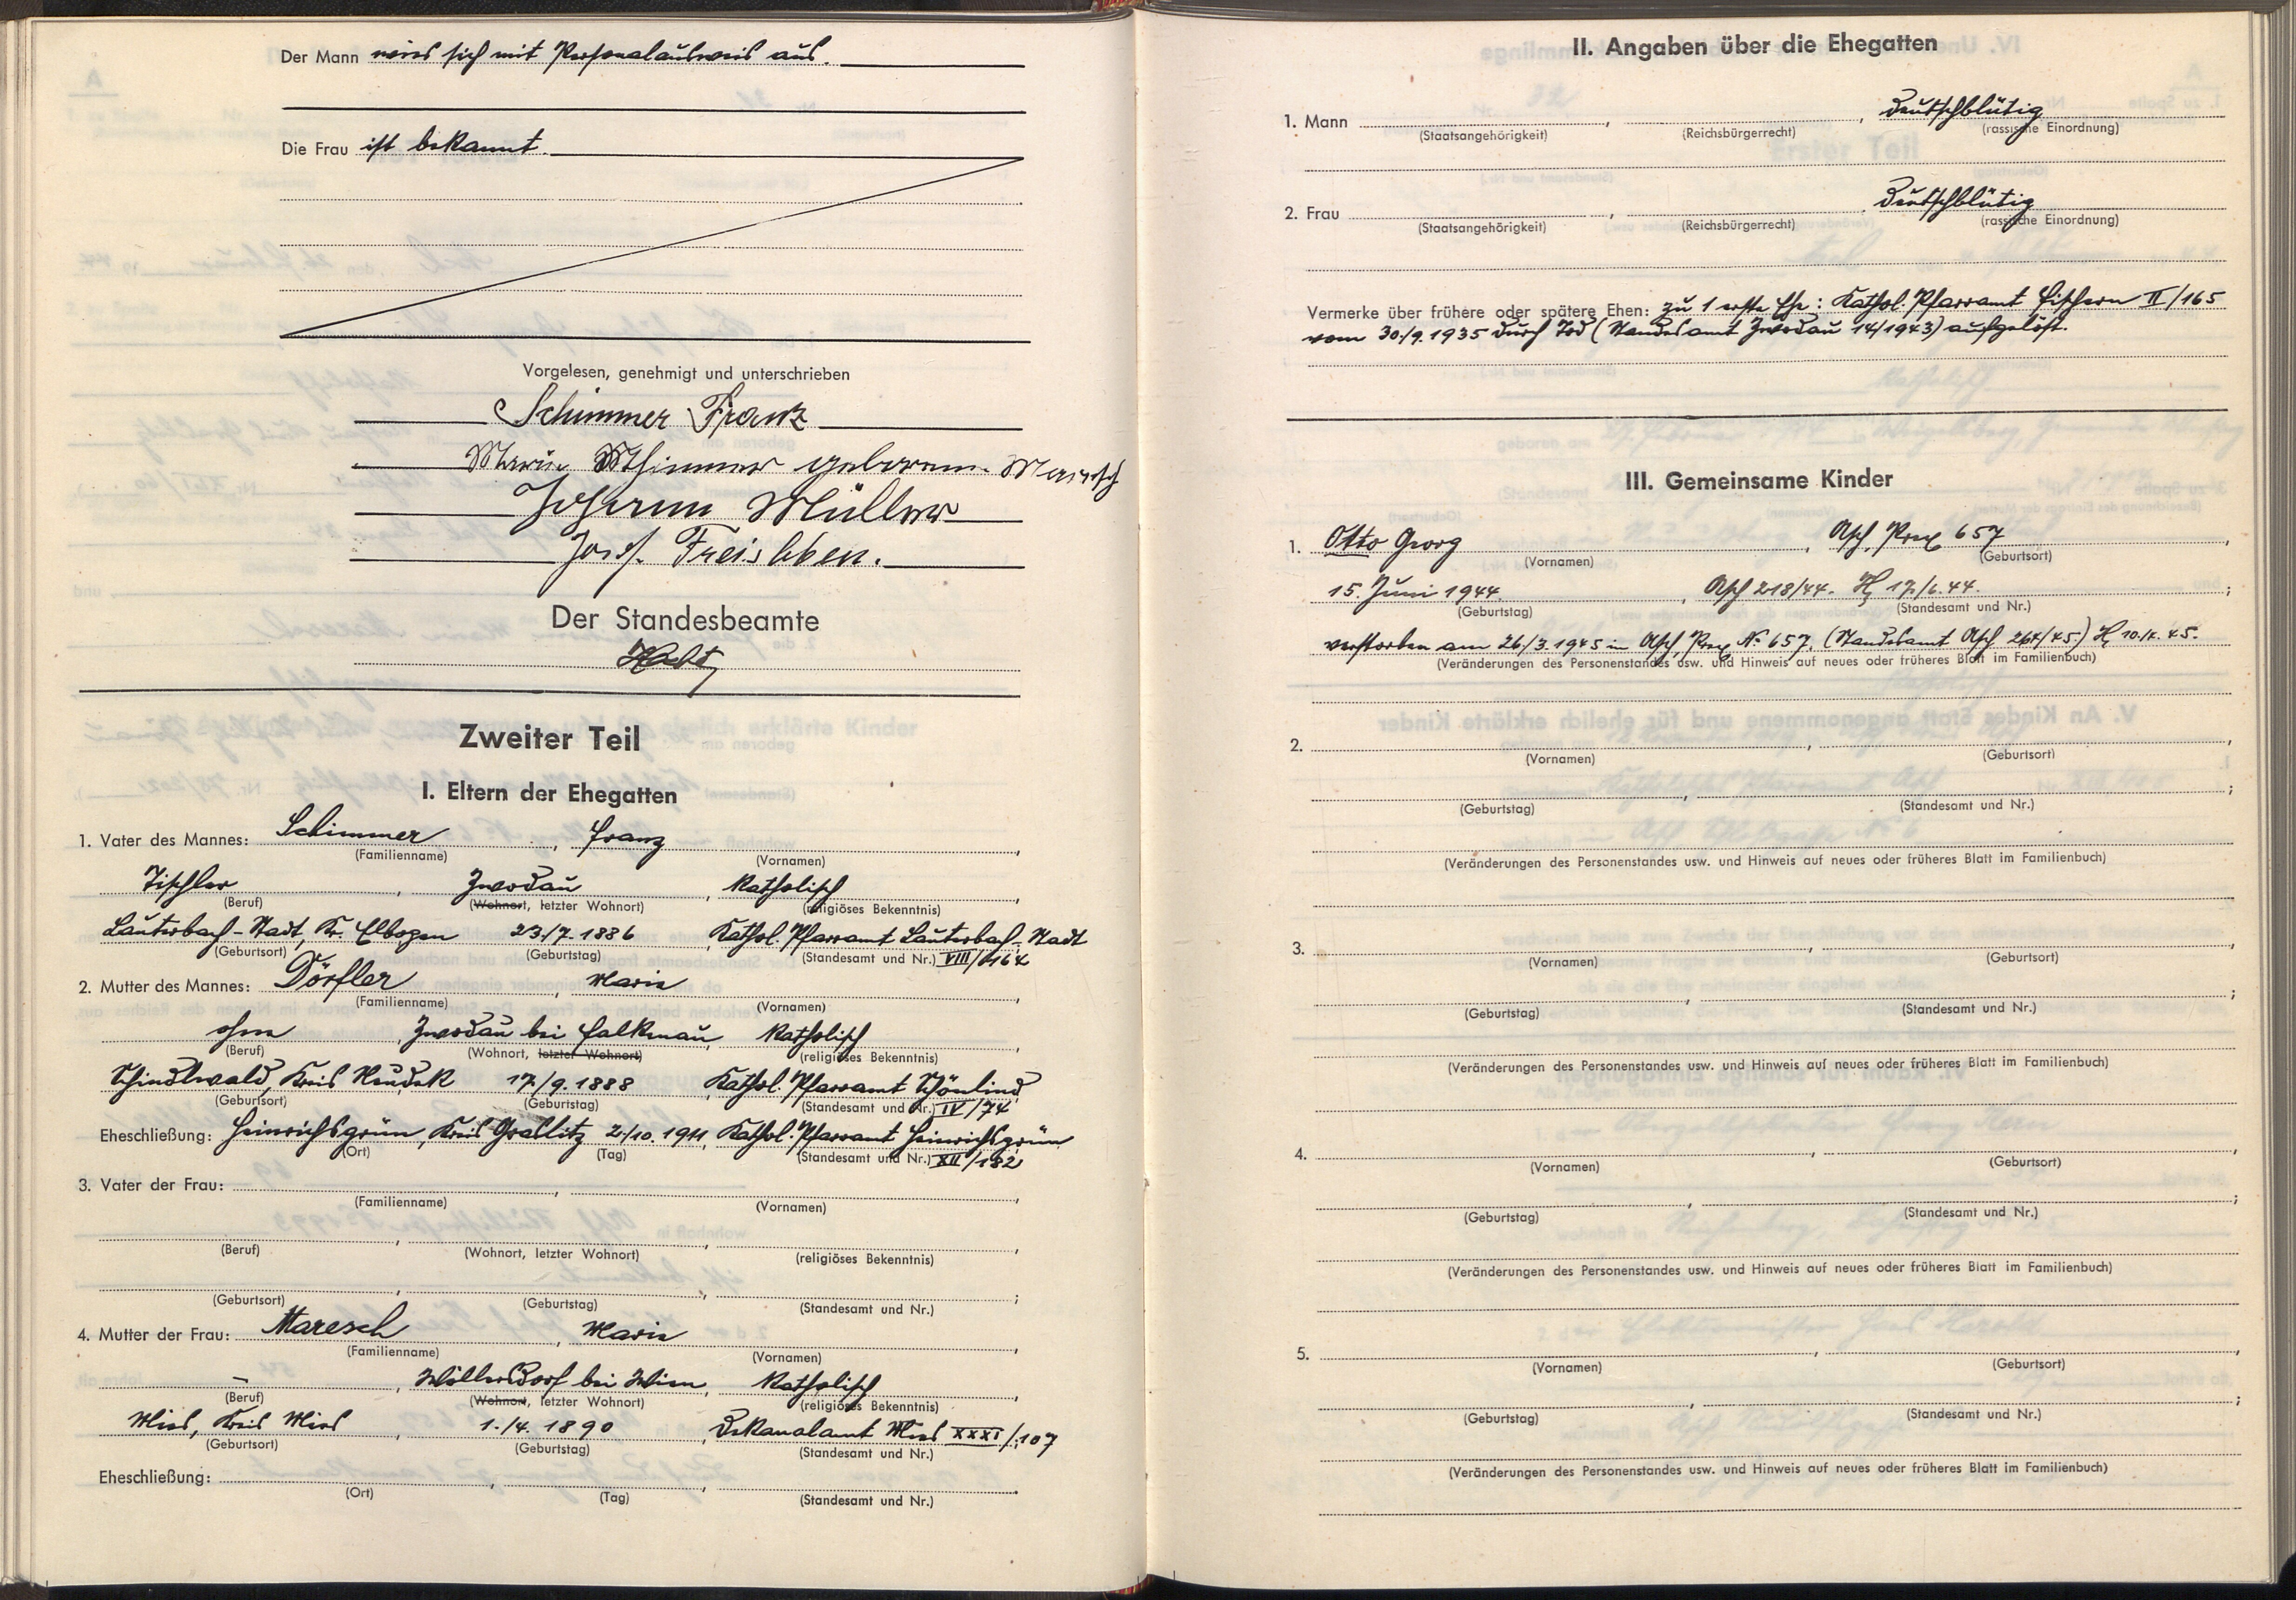 Der Mann weist sich mit Personalausweis aus.
Die Frau ist bekannt.
Vorgelesen, genehmigt und unterschrieben
Schimmer Franz
Marie Schimmer geborene Maresch
Johann Müller
Josef Freisleben.
Der Standesbeamte
Zweiter Teil
I. Eltern der Ehegatten
1. Vater des Mannes: Schimmer, Franz,
(Familienname) (Vornamen)
Tischler, Zwodau, katholisch,
(Beruf) (Wohnort, letzter Wohnort) (religiöses Bekenntnis)
Lauterbach-Stadt, Kr. Elbogen 23./7. 1886, Kathol. Pfarramt Lauterbach-Stadt
(Geburtsort) (Geburtstag) (Standesamt und Nr.) VIII/164
2. Mutter des Mannes: Dörfler, Marie,
(Familienname) (Vornamen)
ohne, Zwodau bei Falkenau, katholisch,
(Beruf) (Wohnort, letzter Wohnort) (religiöses Bekenntnis)
Schindlwald, Kreis Neudek 17./9. 1888, Kathol. Pfarramt Schönlind,
(Geburtsort) (Geburtstag) (Standesamt und Nr.) IV/74
Eheschließung: Heinrichsgrün, Kreis Graslitz 2./10. 1911, Kathol. Pfarramt Heinrichsgrün
(Ort) (Tag) (Standesamt und Nr.) XII/182
3. Vater der Frau: , ,
(Familienname) (Vornamen)
(Beruf) (Wohnort, letzter Wohnort) (religiöses Bekenntnis)
(Geburtsort) (Geburtstag) (Standesamt und Nr.)
4. Mutter der Frau: Maresch, Marie,
(Familienname) (Vornamen)
–, Wöllersdorf bei Wien, katholisch,
(Beruf) (Wohnort, letzter Wohnort) (religiöses Bekenntnis)
Mies, Kreis Mies, 1./4. 1890, Dekanalamt Mies XXXI/107
(Geburtsort) (Geburtstag) (Standesamt und Nr.)
Eheschließung: , , .
(Ort) (Tag) (Standesamt und Nr.)
II. Angaben über die Ehegatten
1. Mann , , deutschblütig
(Staatsangehörigkeit) (Reichsbürgerrecht) (rassische Einordnung)
2. Frau , , deutschblütig
(Staatsangehörigkeit) (Reichsbürgerrecht) (rassische Einordnung)
Vermerke über frühere oder spätere Ehen: Zu 1 erste Ehe: Kathol. Pfarramt Fischern II/165
vom 30./9. 1935 durch Tod (Standesamt Zwodau 14/1943) aufgelöst.
III. Gemeinsame Kinder
1. Otto Georg, Asch, 657,
(Vornamen) (Geburtsort)
15. Juni 1944, Asch 218/44. 17./6. 44. ;
(Geburtstag) (Standesamt und Nr.)
verstorben am 26./3. 1945 in Asch, No 657. (Standesamt Asch 264/45.) 10./4. 45.
(Veränderungen des Personenstandes usw. und Hinweis auf neues oder früheres Blatt im Familienbuch)
2. , ,
(Vornamen) (Geburtsort)
(Geburtstag) (Standesamt und Nr.)
(Veränderungen des Personenstandes usw. und Hinweis auf neues oder früheres Blatt im Familienbuch)
3. , ,
(Vornamen) (Geburtsort)
(Geburtstag) (Standesamt und Nr.)
(Veränderungen des Personenstandes usw. und Hinweis auf neues oder früheres Blatt im Familienbuch)
4. , ,
(Vornamen) (Geburtsort)
(Geburtstag) (Standesamt und Nr.)
(Veränderungen des Personenstandes usw. und Hinweis auf neues oder früheres Blatt im Familienbuch)
5. , ,
(Vornamen) (Geburtsort)
(Geburtstag) (Standesamt und Nr.)
(Veränderungen des Personenstandes usw. und Hinweis auf neues oder früheres Blatt im Familienbuch)